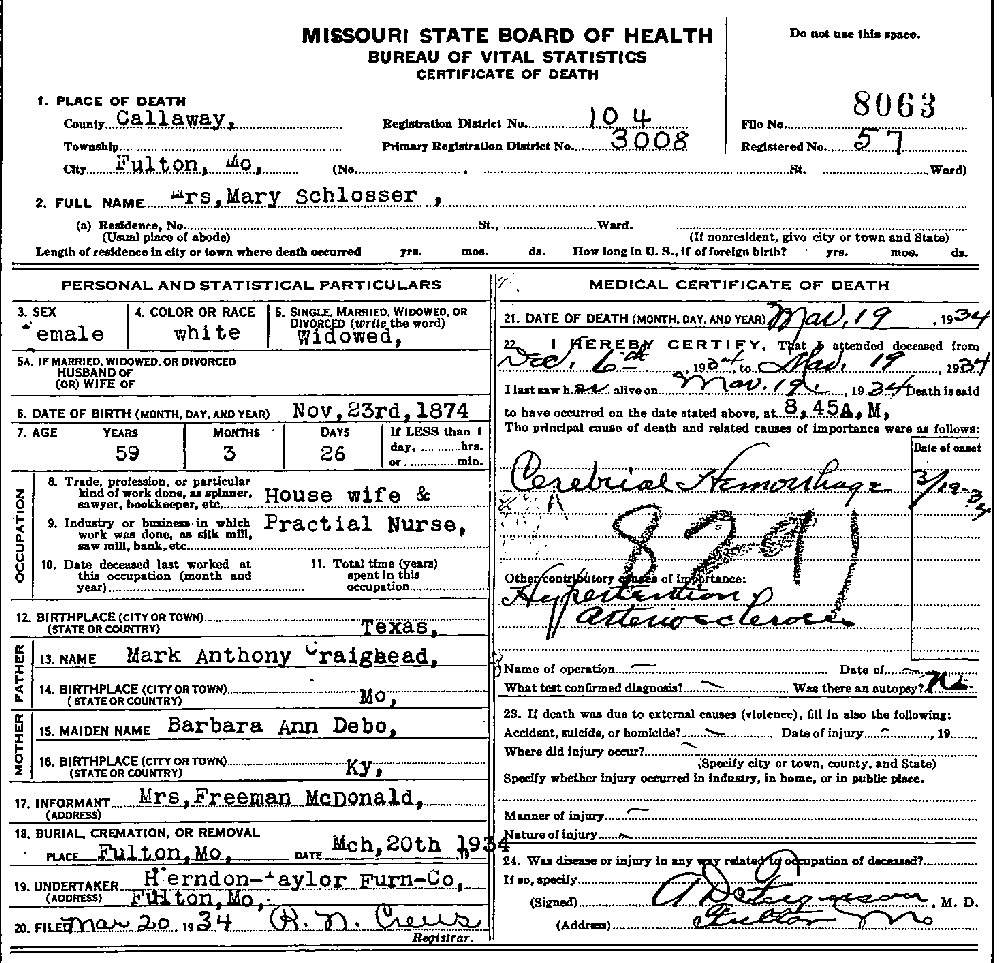 MISSOURI STATE BOARD OF HEALTH
BUREAU OF VITAL STATISTICS
CERTIFICATE OF DEATH
Do not use this space.
8063
1. PLACE OF DEATH
County Callaway, Registration District No. 104 File No.
Township Primary Registration District No. 3008 Registered No. 57
City Fulton, Mo, (No. St. Ward)
2. FULL NAME Mrs, Mary Schlosser,
(a) Residence, No. St., Ward.
(Usual place of abode) (If nonresident, give city or town and State)
Length of residence in city or town where death occurred yrs. mos. ds. How long in U. S., if of foreign birth? yrs. mos. ds.
PERSONAL AND STATISTICAL PARTICULARS
3. SEX 4. COLOR OR RACE 5. SINGLE, MARRIED, WIDOWED, OR
DIVORCED (write the word)
emale white Widowed,
5A. IF MARRIED, WIDOWED, OR DIVORCED
HUSBAND OF
(OR) WIFE OF
6. DATE OF BIRTH (MONTH, DAY, AND YEAR) Nov, 23rd, 1874
7. AGE YEARS MONTHS DAYS If LESS than 1
day, hrs.
59 3 26 or min.
OCCUPATION
8. Trade, profession, or particular
kind of work done, as spinner,
sawyer, bookkeeper, etc. House wife &
9. Industry or business in which Practial Nurse,
work was done, as silk mill,
saw mill, bank, etc.
10. Date deceased last worked at 11. Total time (years)
this occupation (month and spent in this
year) occupation
12. BIRTHPLACE (CITY OR TOWN)
(STATE OR COUNTRY) Texas,
FATHER
13. NAME Mark Anthony Craighead,
14. BIRTHPLACE (CITY OR TOWN)
(STATE OR COUNTRY) Mo,
MOTHER
15. MAIDEN NAME Barbara Ann Debo,
16. BIRTHPLACE (CITY OR TOWN)
(STATE OR COUNTRY) Ky,
17. INFORMANT Mrs, Freeman McDonald,
(ADDRESS)
18. BURIAL, CREMATION, OR REMOVAL
PLACE Fulton, Mo, DATE Mch, 20th 1934
19. UNDERTAKER Herndon-Taylor Furn-Co,
(ADDRESS) Fulton, Mo,
20. FILED Mar 20 1934 R. N. Crews
Registrar.
MEDICAL CERTIFICATE OF DEATH
21. DATE OF DEATH (MONTH, DAY, AND YEAR) Mar. 19, 1934
22. I HEREBY CERTIFY, That I attended deceased from
Dec. 6th, 1934 to Mar. 19 1934
I last saw her alive on Mar. 19, 1934 Death is said
to have occurred on the date stated above, at 8,45A, M,
The principal cause of death and related causes of importance were as follows:
Date of onset
Cerebrial Hemorrhage 3/19-34
A
829
Other contributory causes of importance:
Hypertention
arteriosclerosis
Name of operation Date of
What test confirmed diagnosis? Was there an autopsy? No
23. If death was due to external causes (violence), fill in also the following:
Accident, suicide, or homicide? Date of injury , 19
Where did injury occur?
(Specify city or town, county, and State)
Specify whether injury occurred in industry, in home, or in public place.
Manner of injury
Nature of injury
24. Was disease or injury in any way related to occupation of deceased?
If so, specify
(Signed) , M. D.
(Address) Fulton Mo